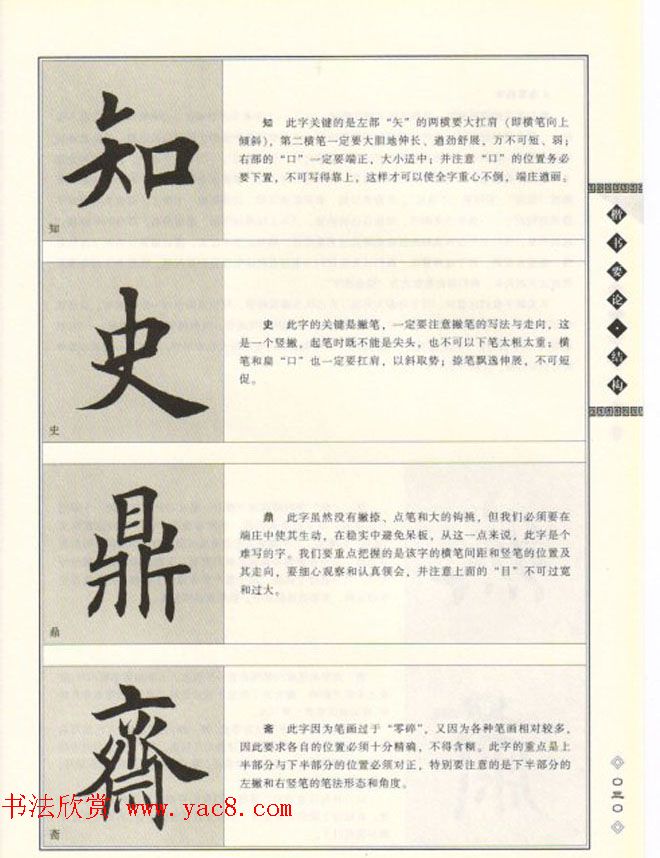 知
知
知 此字关键的是左部“矢”的两横要大扛肩（即横笔向上
倾斜），第二横笔一定要大胆地伸长、遒劲舒展，万不可短、弱；
右部的“口”一定要端正，大小适中；并注意“口”的位置务必
要下置，不可写得靠上，这样才可以使全字重心不倒，端庄遒丽。
史
史
史 此字的关键是撇笔，一定要注意撇笔的写法与走向，这
是一个竖撇，起笔时既不能是尖头，也不可以下笔太粗太重；横
笔和扁“口”也一定要扛肩，以斜取势；捺笔飘逸伸展，不可短
促。
鼎
鼎
鼎 此字虽然没有撇捺、点笔和大的钩挑，但我们必须要在
端庄中使其生动，在稳实中避免呆板，从这一点来说，此字是个
难写的字。我们要重点把握的是该字的横笔间距和竖笔的位置及
其走向，要细心观察和认真领会，并注意上面的“目”不可过宽
和过大。
齋
斋
斋 此字因为笔画过于“零碎”，又因为各种笔画相对较多，
因此要求各自的位置必须十分精确，不得含糊。此字的重点是上
半部分与下半部分的位置必须对正，特别要注意的是下半部分的
左撇和右竖笔的笔法形态和角度。
楷书要论·结构
〇三〇
书法欣赏 www.yac8.com